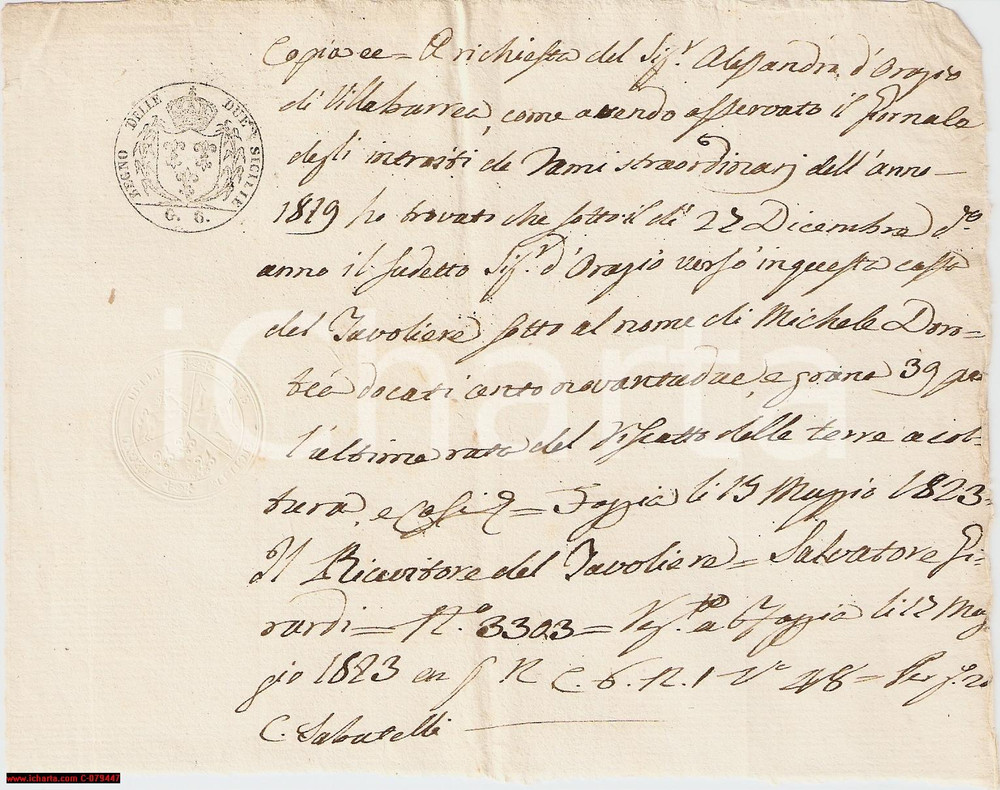 Copia &c = A richiesta del Sig.r Alessandro d'Orazio
di Villabarrea, come avendo osservato il Giornale
degli introiti de rami straordinarj dell'anno
1819 ho trovato che sotto il dì 27 Dicembre d.o
anno il sudetto Sig.r d'Orazio versò in questa cassa
del Tavoliere sotto al nome di Michele Doro=
teo docati cento novantadue, e grana 39 per
l'ultima rata del riscatto delle terre a col=
tura, e così = Foggia li 15 Maggio 1823 =
Il Ricevitore del Tavoliere = Salvatore Gi=
rardi = N.o 3303 = Foggia li 17 Mag=
gio 1823 C. 6. N. 1 V. 48 = gr. 20
C. Sabatelli
REGNO DELLE DUE SICILIE
G. 6.
iCharta
www.icharta.com C-079447